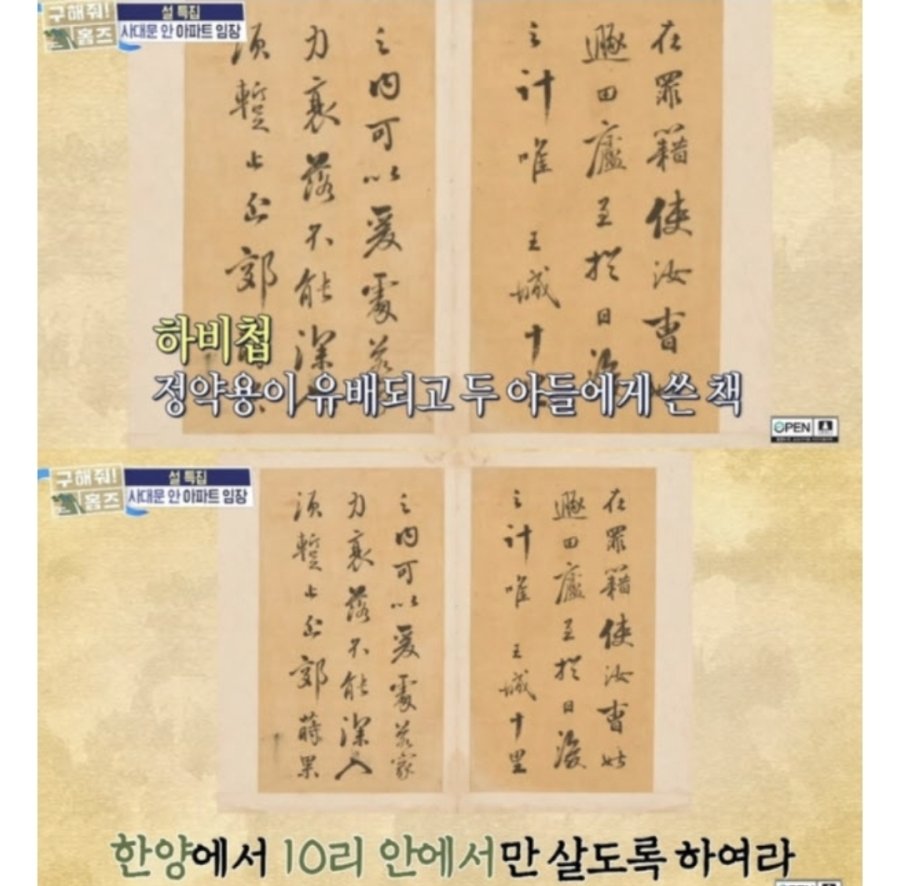 구해줘!
홈즈
설 특집
사대문 안 아파트 임장
在罪籍使汝曹
遯田廬至於日後
之計唯 王城十
之內可以爰處若
力衰落不能深
須暫止近郊
하비첩
정약용이 유배되고 두 아들에게 쓴 책
OPEN
구해줘!
홈즈
설 특집
사대문 안 아파트 임장
在罪籍使汝曹姑
遯田廬至於日後
之計唯 王城十里
之內可以爰處若家
力衰落不能深入
須暫止近郊蒔果
한양에서 10리 안에서만 살도록 하여라